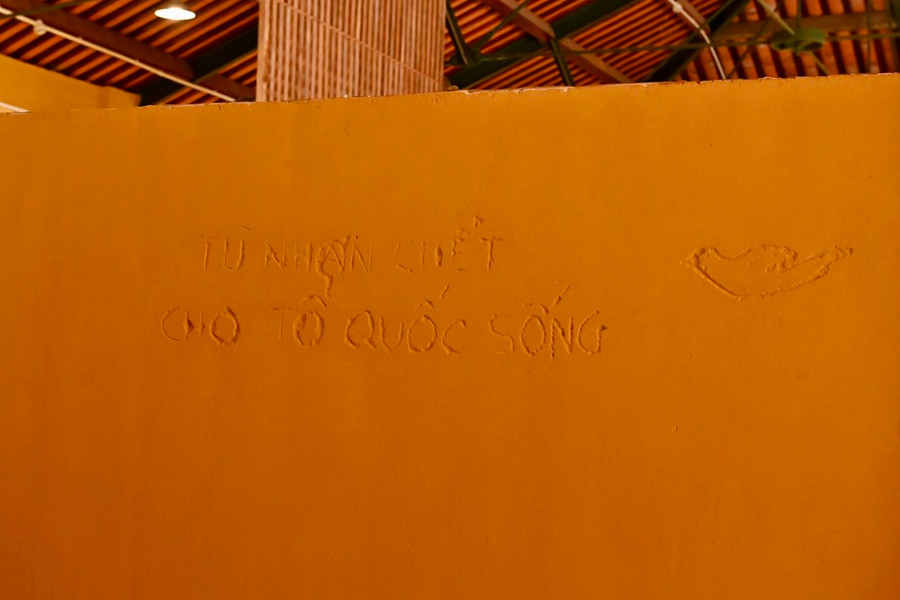 TÙ NHÂN CHẾT
CHO TỔ QUỐC SỐNG